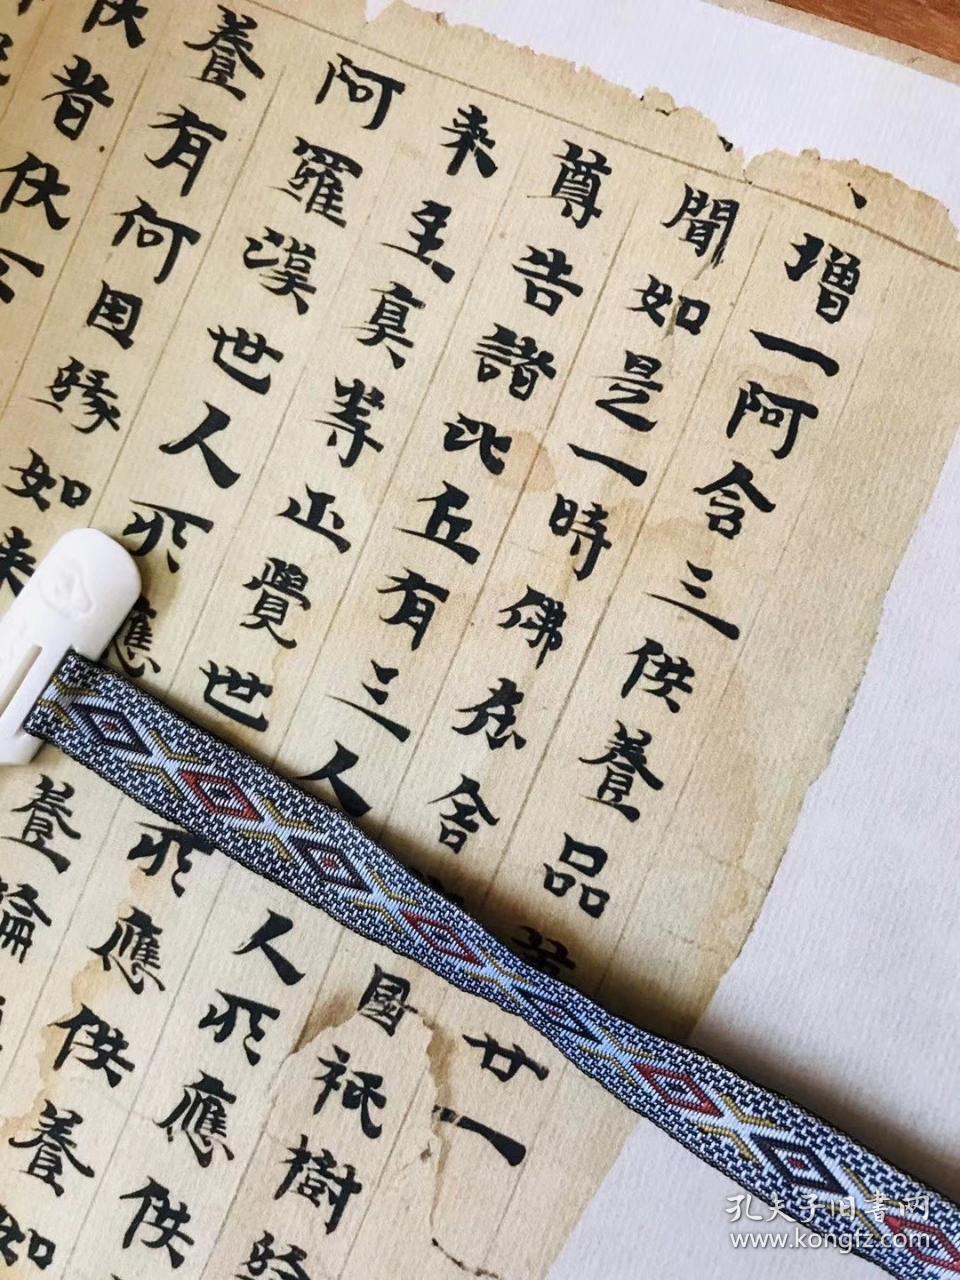 增一阿含三供養品第廿一
聞如是一時佛在舍衛國祇樹給
尊告諸比丘有三人人所應供
来至真等正覺世所應供養如
阿羅漢世人所應養論
養有何因緣如来
供者伏
孔夫子旧书网
www.kongfz.com